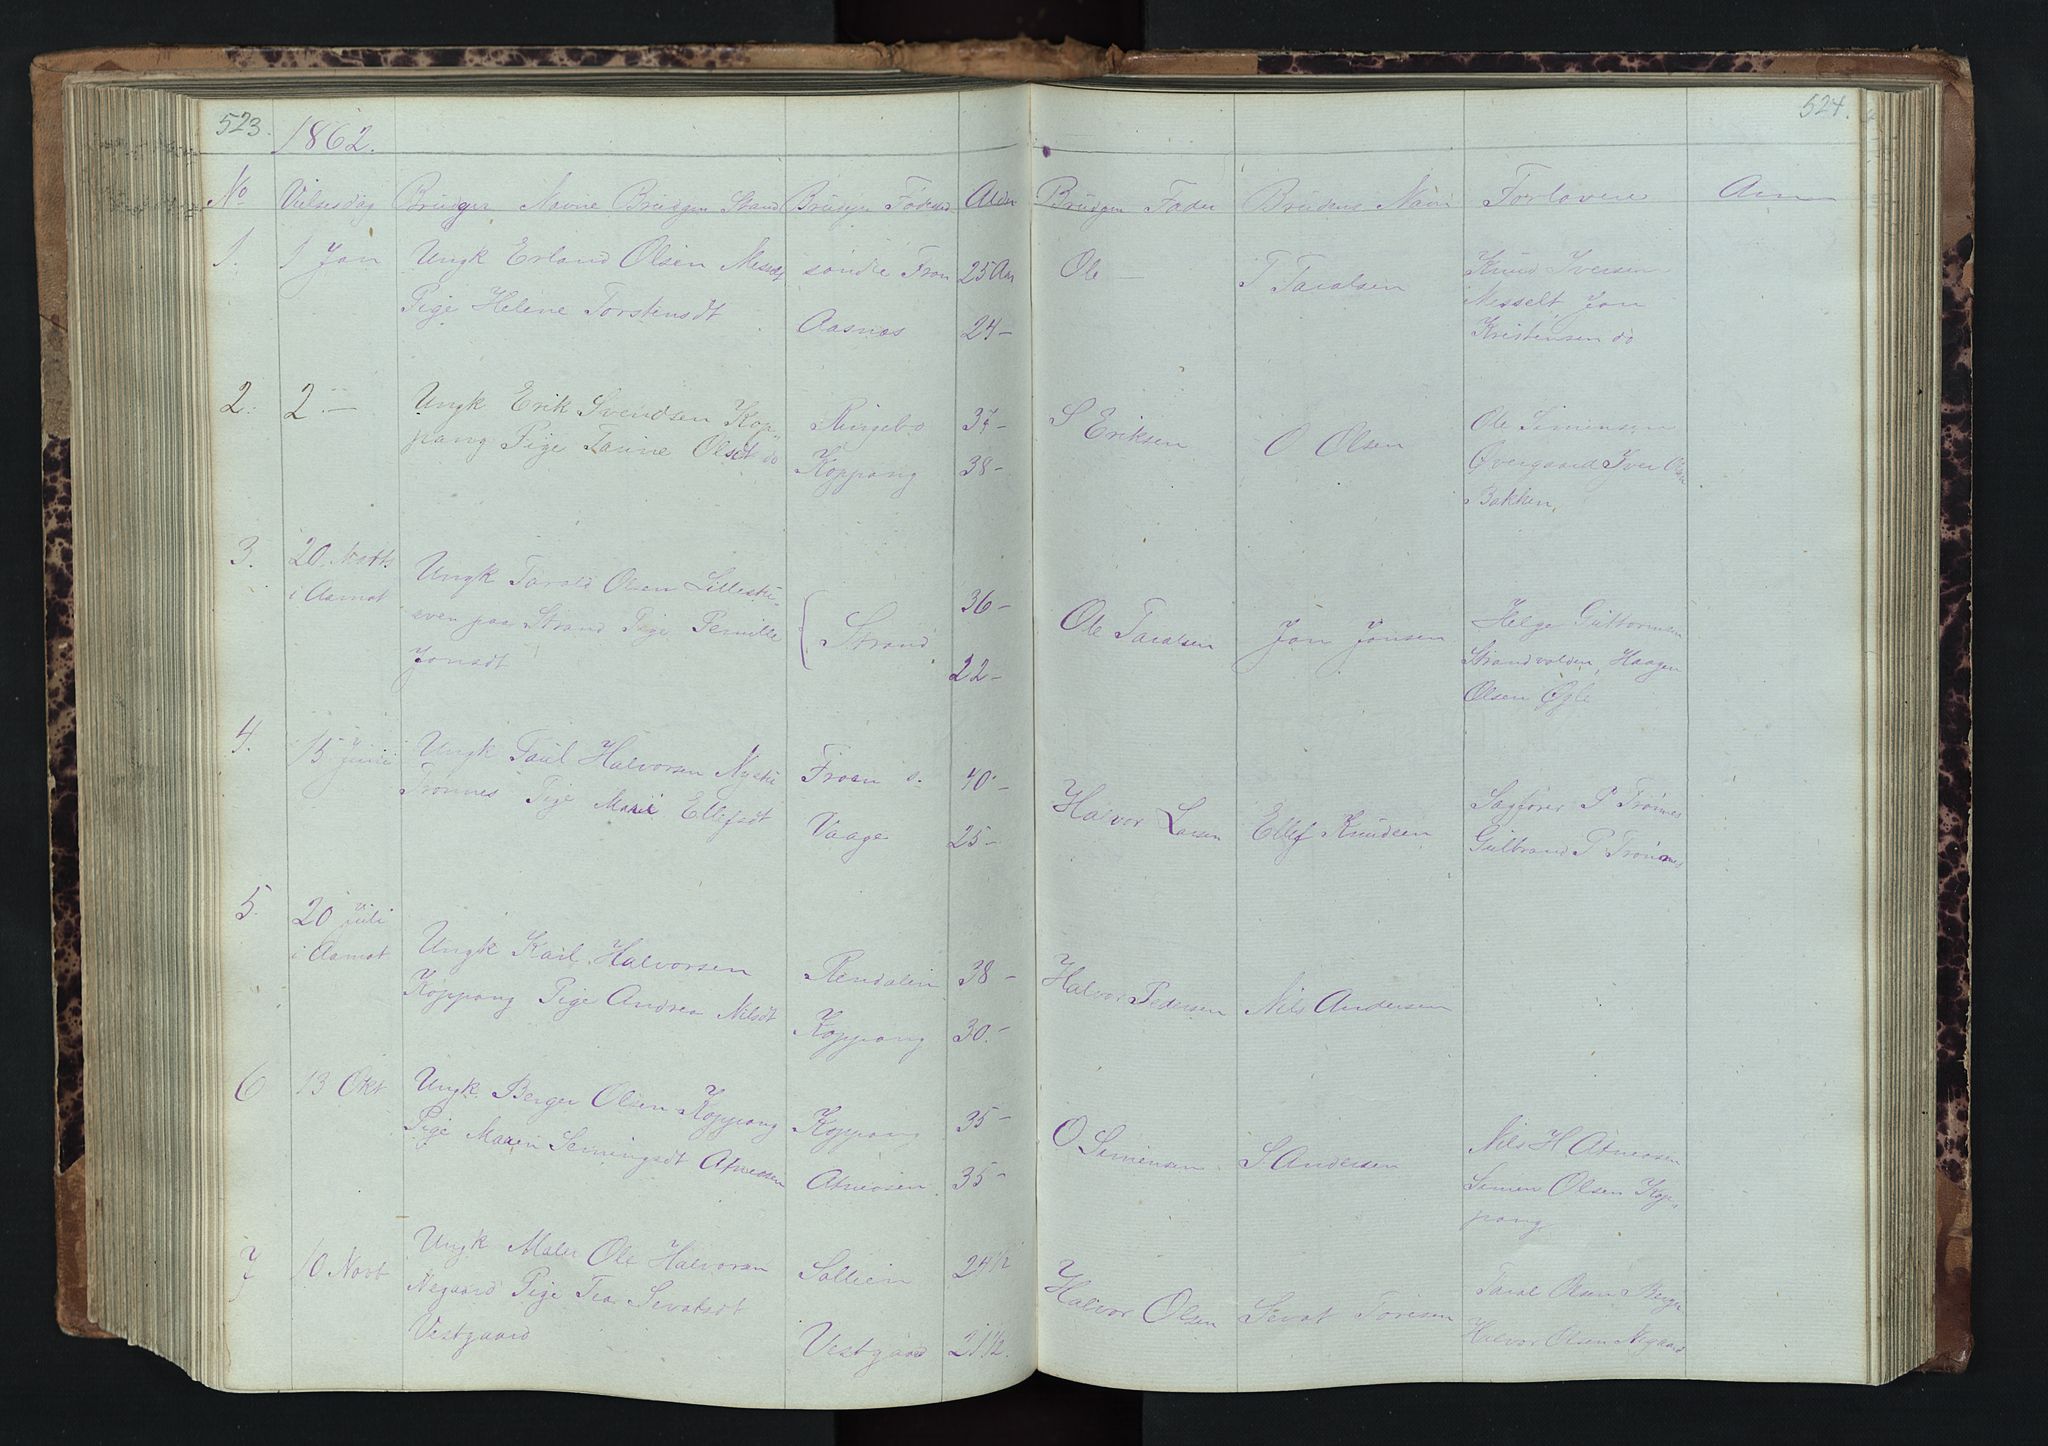 523.
1862.
No Vielsesdag Brudgs Navne Brudgm Stand Brudgs Fødested Alder
1. 1 Jan Ungk Erland Olsen Messelt søndre Fron 25 Aar
Pige Helene Torstensdt Aasnes 24 –
2. 2 – Ungk Erik Svendsen Kop-
Ringebo 37 –
pang Pige Olsdt do Koppang 38 –
3. 20 i Aamot
Ungk Olsen
36 –
even paa Strand Pige Pernille Strand
Jonsdt 22 –
4. 15 Juni Ungk Paul Halvorsen
Froen s. 40 –
Trønnes Pige Marie Ellefsdt
Vaage 25 –
5. 20 Juli
i Aamot
Ungk Karl Halvorsen Rendalen 38 –
Koppang Pige Andrea Nilsdt
Koppang 30 –
6 13 Okt Ungk Berger Olsen Koppang
Koppang 35 –
Pige Maren Semingsdt Atneosen
Atneosen 35 –
7 10 Novb Ungk Maler Ole Halvorsen
Sollien 24 1/2
Negaard Pige Tea Sevatsdt
Vestgaard Vestgaard 21 1/2
524.
Brudgm Fader Brudens Navn Forlovere Anm
Ole – T Taralsen Knud Iversen
Messelt, Jon
Kristensen do
S Eriksen O Olsen Ole Simensen
Øvergaard Iver Olsen
Bakken
Ole Taralsen Jon Jonsen Helge Guttormsen
Strandvolden, Haagen
Olsen Øgle
Halvor Larsen Ellef Knudsen Sagfører P Trønnes
Gulbrand P Trønnes
Halvor Pedersen Nils Andersen
O Simensen S Andersen Nils H Atneosen
Simen Olsen Kop-
pang
Halvor Olsen Sevat Toresen Taral Olsen Berger
Halvor Olsen Negaard